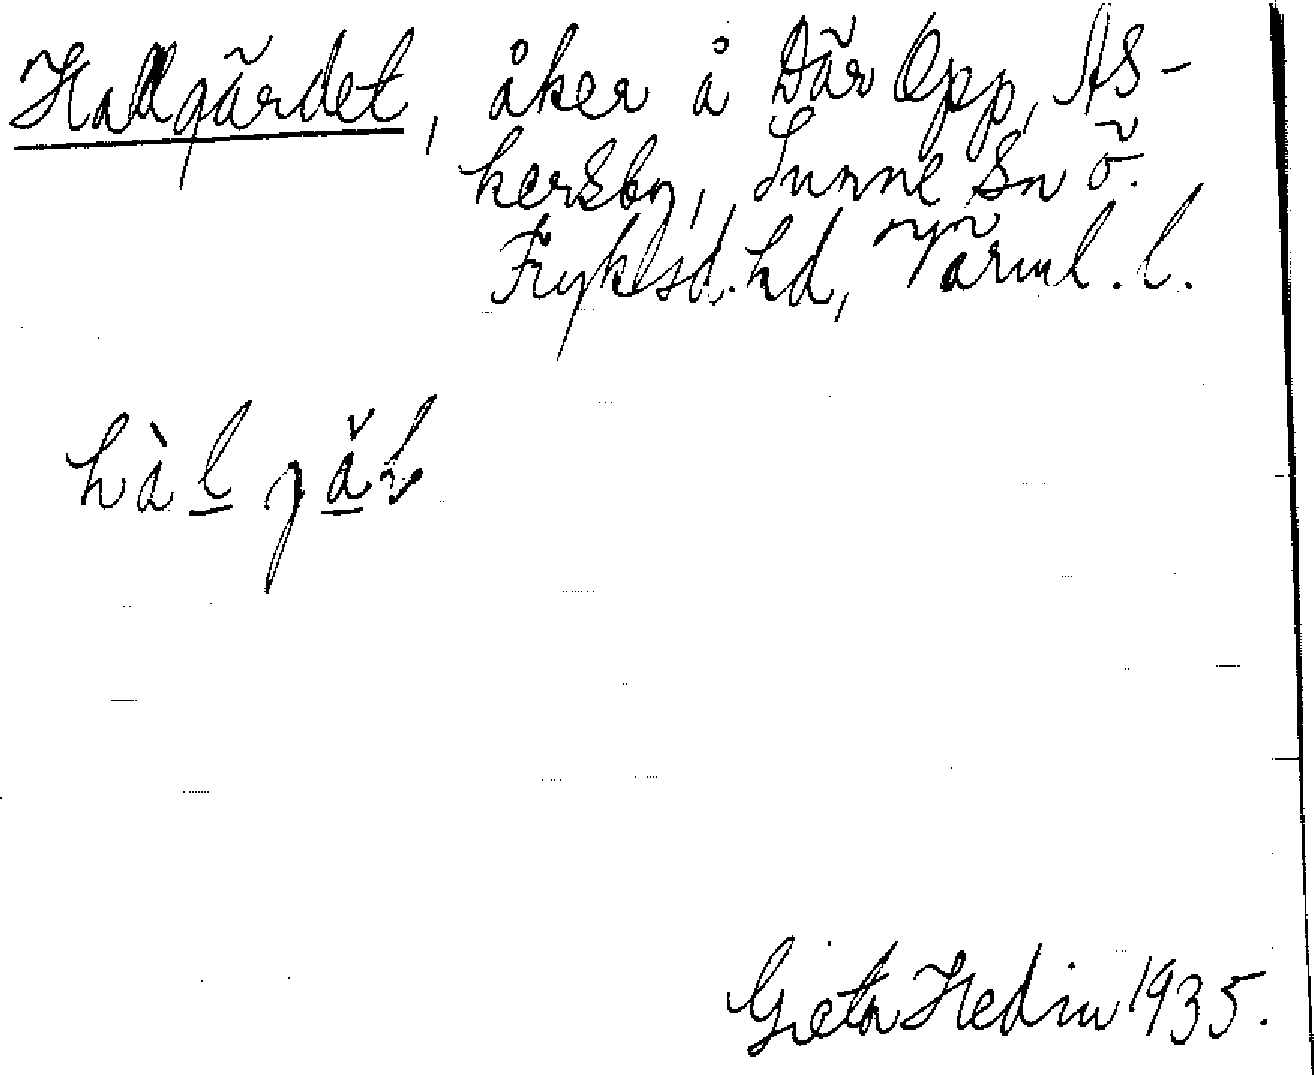 Hallgärdet, åker å Där Opp, As-
kersby, Sunne Sn Ö.
Fryksd. hd, Värml. l.
hàl gål
Greta Hedin 1935.